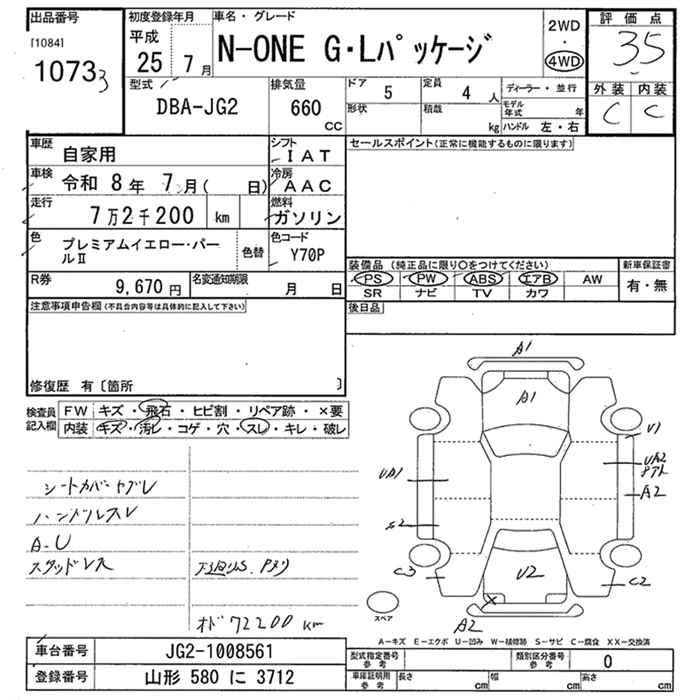 出品番号
[1084]
1073 3
初度登録年月
平成
25 7月
車名・グレード
N-ONE G・Lパッケージ
2WD
・
4WD
評価点
35
外装 内装
C C
型式
DBA-JG2
排気量
660
CC
ドア 5
形状
定員 4 人
積載 kg
ディーラー・並行
モデル年式 年
ハンドル 左・右
車歴 自家用
シフト IAT
車検 令和 8年 7月( 日)
冷房 AAC
走行 7万2千200 km
燃料 ガソリン
色 プレミアムイエロー・パールⅡ
色替
色コード Y70P
R券 9,670 円
名変通知期限 月 日
セールスポイント(正常に機能するものに限ります)
装備品 (純正品に限り○をつけてください)
PS PW ABS エアB AW
SR ナビ TV カワ
新車保証書
有・無
後日品
注意事項申告欄(不具合内容等は具体的に記入して下さい)
修復歴 有〔箇所 〕
検査員記入欄
FW キズ・飛石・ヒビ割・リペア跡・×要
内装 キズ・汚レ・コゲ・穴・スレ・キレ・破レ
シートカバーヤブレ
ハンドルスレ
A-U
スタッドレス
下廻りS.Pヌリ
オド72200km
A1
A1
V1
UA1
UA2
A2
S2
C3
U2
C2
A2
スペア
A-キズ E-エクボ U-凹み W-補修跡 S-サビ C-腐食 XX-交換済
車台番号 JG2-1008561
登録番号 山形 580 に 3712
型式指定番号
参考
類別区分番号
参考
0
車庫証明用
参考
長さ cm
幅 cm
高さ cm